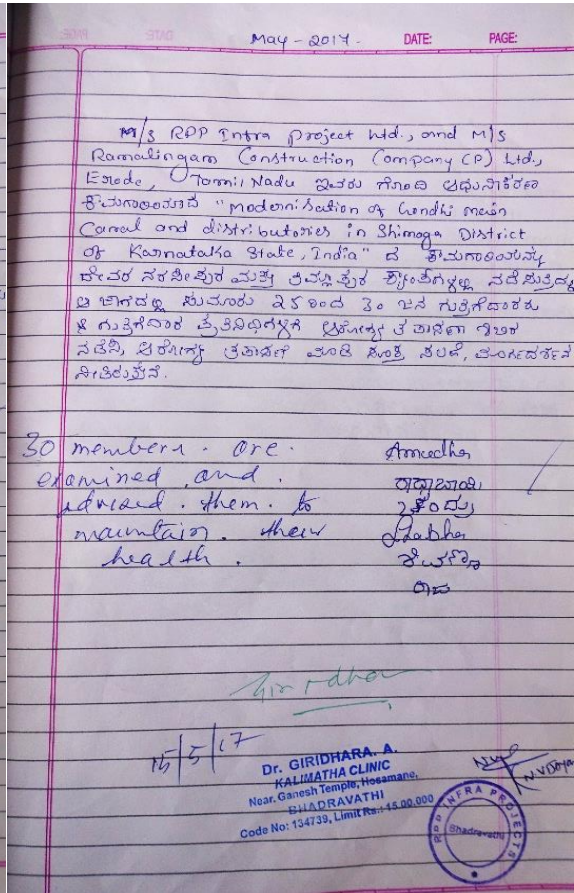 May - 2017. DATE: PAGE:
M/s RPP Infra project Ltd., and M/s
Ramalingam Construction Company (P) Ltd.,
Erode, Tamil Nadu ಇವರು ಗೊಂದಿ ಆಧುನೀಕರಣ
ಕಾಮಗಾರಿಯಾದ "Modernisation of Gondhi main
Canal and distributories in Shimoga District
of Karnataka State, India" ದ ಕಾಮಗಾರಿಯನ್ನು
ದೇವರ ನರಸೀಪುರ ಮತ್ತು ತಿಮ್ಲಾಪುರ ಕ್ಯಾಂಪ್‌ಗಳಲ್ಲಿ ನಡೆಸುತ್ತಿದ್ದು
ಆ ಭಾಗದಲ್ಲಿ ಸುಮಾರು 25 ರಿಂದ 30 ಜನ ಗುತ್ತಿಗೆದಾರರು
& ಗುತ್ತಿಗೆದಾರ ಪ್ರತಿನಿಧಿಗಳಿಗೆ ಆರೋಗ್ಯ ತಪಾಸಣಾ ಶಿಬಿರ
ನಡೆಸಿ, ಆರೋಗ್ಯ ತಪಾಸಣೆ ಮಾಡಿ ಸೂಕ್ತ ಸಲಹೆ, ಮಾರ್ಗದರ್ಶನ
ನೀಡಿರುತ್ತಾರೆ.
30 members. are.
examined and.
advised. them. to
maintain. their
health.
Amudha
ರಾಧ್ಯಾಬಾಯಿ
ಚಂದ್ರು
ರಾಜ
Giridhar
15/5/17
Dr. GIRIDHARA. A.
KALIMATHA CLINIC
Near. Ganesh Temple, Hosamane,
BHADRAVATHI
Code No: 134739, Limit Rs.: 15,00,000
RPP INFRA PROJECTS
Bhadravathi